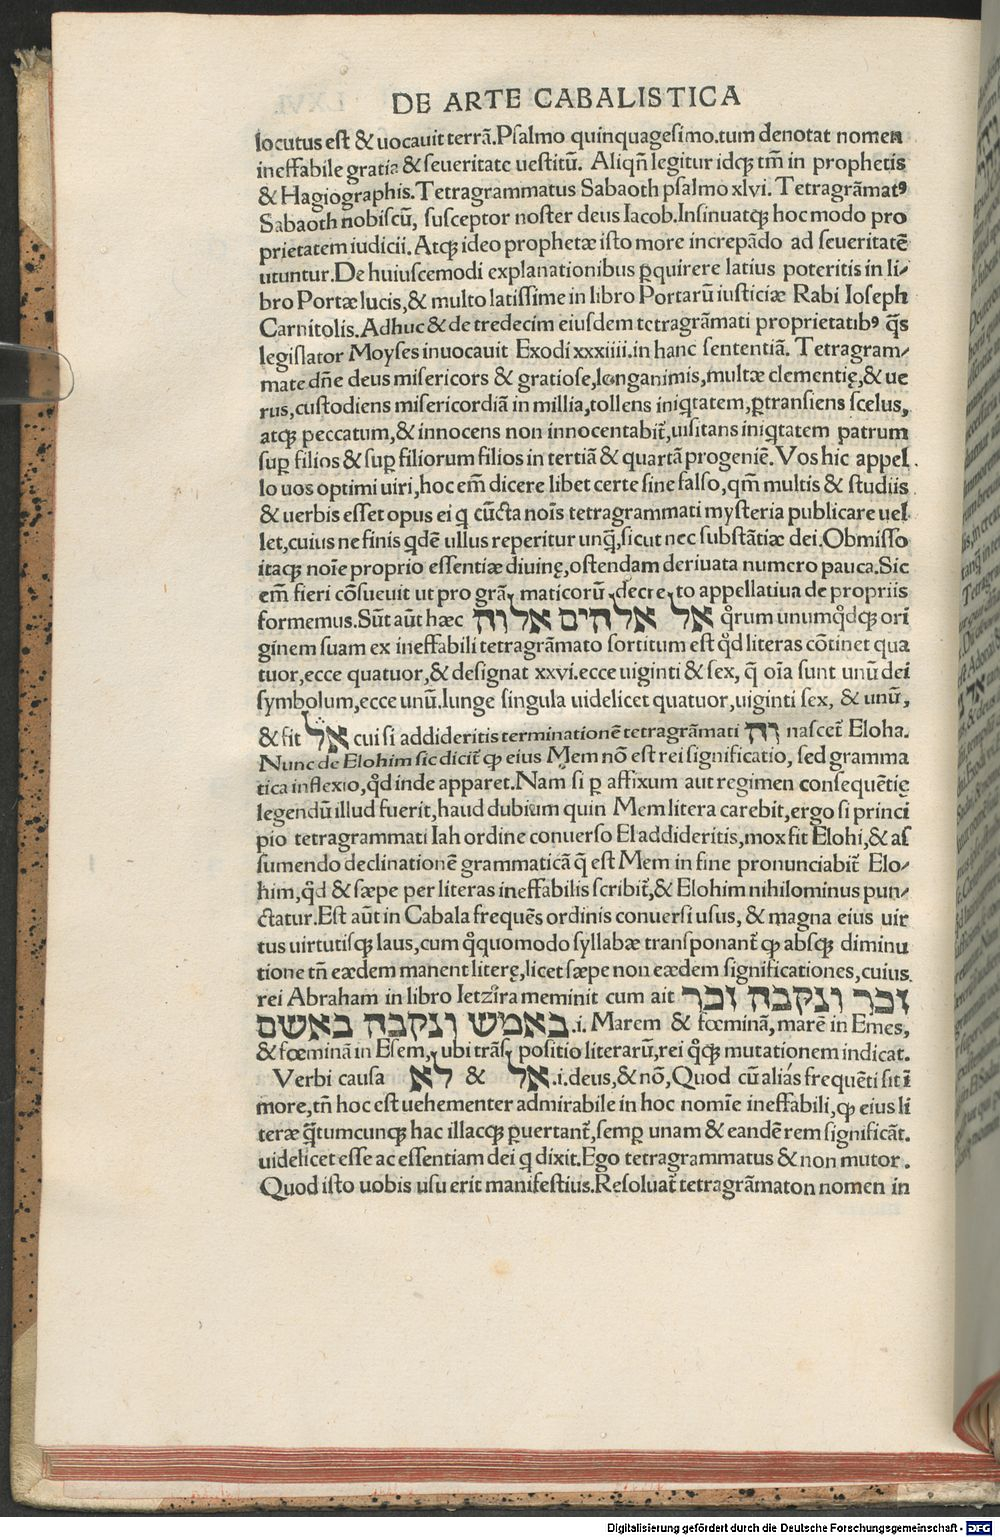 DE ARTE CABALISTICA
locutus est & uocauit terrã. Psalmo quinquagesimo. tum denotat nomen
ineffabile gratia & seueritate uestitũ. Aliqñ legitur idqʒ tm̃ in prophetis
& Hagiographis. Tetragrammatus Sabaoth psalmo xlvi. Tetragrãmatꝰ
Sabaoth nobiscũ, susceptor noster deus Iacob. Insinuatqʒ hoc modo pro
prietatem iudicii. Atqʒ ideo prophetæ isto more increpãdo ad seueritatẽ
utuntur. De huiuscemodi explanationibus ꝑquirere latius poteritis in li⸗
bro Portæ lucis, & multo latissime in libro Portarũ iusticiæ Rabi Ioseph
Carnitolis. Adhuc & de tredecim eiusdem tetragrãmati proprietatibꝰ q̃s
legislator Moyses inuocauit Exodi xxxiiii. in hanc sententiã. Tetragram⸗
mate dñe deus misericors & gratiose, longanimis, multæ clementię, & ue
rus, custodiens misericordiã in millia, tollens iniqtatem, ꝑtransiens scelus,
atqʒ peccatum, & innocens non innocentabit̃, uisitans iniqtatem patrum
suꝑ filios & suꝑ filiorum filios in tertiã & quartã progeniẽ. Vos hic appel
lo uos optimi uiri, hoc em̃ dicere libet certe sine falso, qm̃ multis & studiis
& uerbis esset opus ei q cũcta nois̃ tetragrammati mysteria publicare uel
let, cuius ne finis qdẽ ullus reperitur unq̃, sicut nec substãtiæ dei. Obmisso
itaqʒ noĩe proprio essentiæ diuinę, ostendam deriuata numero pauca. Sic
em̃ fieri cõsueuit ut pro grã maticorũ decre to appellatiua de propriis
formemus. Sũt aũt hæc אל אלהים אלוה qͦrum unumqͦdqʒ ori
ginem suam ex ineffabili tetragrãmato sortitum est qͦd literas cõtinet qua
tuor, ecce quatuor, & designat xxvi. ecce uiginti & sex, q̃ oĩa sunt unũ dei
symbolum, ecce unũ. Iunge singula uidelicet quatuor, uiginti sex, & unũ,
& fit אל cui si addideritis terminationẽ tetragrãmati וה nascet̃ Eloha.
Nunc de Elohim sic dicit̃ ꝙ eius Mem nõ est rei significatio, sed gramma
tica inflexio, qͦd inde apparet. Nam si ꝑ affixum aut regimen consequẽtię
legendũ illud fuerit, haud dubium quin Mem litera carebit, ergo si princi
pio tetragrammati Iah ordine conuerso El addideritis, mox fit Elohi, & as
sumendo declinationẽ grammaticã q̃ est Mem in fine pronunciabit̃ Elo⸗
him, qͦd & sæpe per literas ineffabilis scribit̃, & Elohim nihilominus pun⸗
ctatur. Est aũt in Cabala frequẽs ordinis conuersi usus, & magna eius uir
tus uirtutisqʒ laus, cum qͦquomodo syllabæ transponant̃ ꝙ absqʒ diminu
tione tñ eædem manent literę, licet sæpe non eædem significationes, cuius
rei Abraham in libro Ietzira meminit cum ait זכר ונקבה זכר
באמש ונקבה באשם .i. Marem & fœminã, marẽ in Emes,
& fœminã in Esem, ubi trãs positio literarũ, rei qͦqʒ mutationem indicat.
Verbi causa אל & לא .i. deus, & nõ, Quod cũ aliás frequẽti sit ĩ
more, tñ hoc est uehementer admirabile in hoc nomĩe ineffabili, ꝙ eius li
teræ q̃tumcunqʒ hac illacqʒ ꝑuertant̃, semꝑ unam & eandẽ rem significãt.
uidelicet esse ac essentiam dei q dixit. Ego tetragrammatus & non mutor.
Quod isto uobis usu erit manifestius. Resoluat̃ tetragrãmaton nomen in
Digitalisierung gefördert durch die Deutsche Forschungsgemeinschaft - DFG